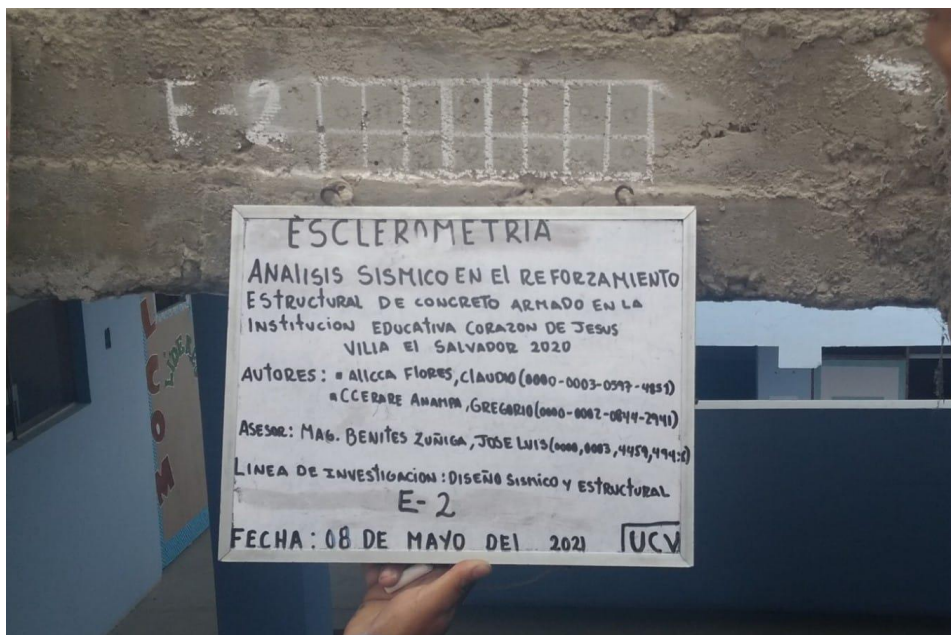 E-2
ESCLEROMETRIA
ANALISIS SISMICO EN El REFORZAMIENTO
ESTRUCTURAL DE CONCRETO ARMADO EN LA
INSTITUCION EDUCATIVA CORAZON DE JESUS
VILLA El SALVADOR 2020
AUTORES: AllCCA FLORES, ClAUDIO (0000-0003-0597-4851)
CCERARE ANAMPA, GREGORIO (0000-0002-0844-2941)
ASESOR: MAG. BENITES ZUÑIGA, JOSE LUIS (0000,0003,4459,
LINEA DE INVESTIGACION: DISEÑO SISMICO Y ESTRUCTURAL
E-2
FECHA: 08 DE MAYO DEl 2021 UCV
LCOM
LIDER